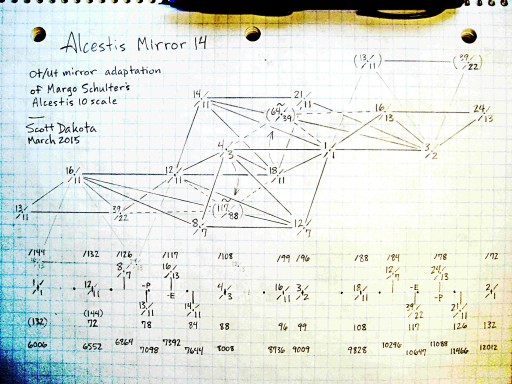 Alcestis Mirror 14
ot/ut mirror adaptation
of Margo Schulter's
Alcestis 10 scale
Scott Dakota
March 2015
(13/11) (39/22)
14/11 21/11 16/13 24/13
(64/39)
4/3 1/1 3/2
16/11 12/11 18/11
(117/88)
13/11 39/22 8/7 12/7
/144 /132 /126 /117 /108 /99 /96 /88 /84 /78 /72
8/7 16/13 12/7 24/13
1/1 12/11 -P -E 4/3 16/11 3/2 18/11 -E -P 2/1
13/11 14/11 39/22 21/11
(132) (144) 72 78 84 88 96 99 108 117 126 132
6006 6552 6864 7098 7392 7644 8008 8736 9009 9828 10296 10647 11088 11466 12012